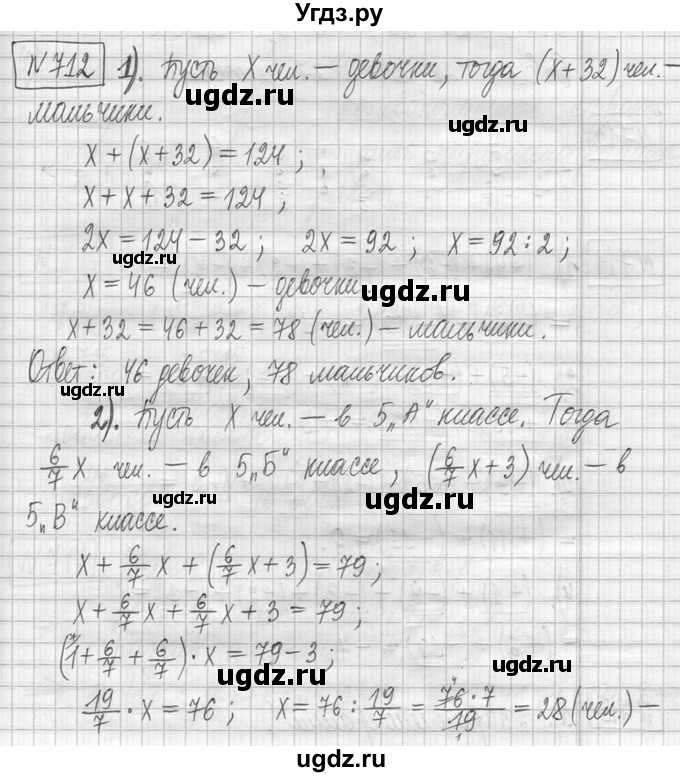 Угдз.ру
№ 712 1). Пусть x чел. – девочки, тогда (x+32) чел. –
ugdz.ru ugdz.ru
мальчики.
x + (x+32) = 124 ;
x + x + 32 = 124 ;
2x = 124 – 32 ; 2x = 92 ; x = 92 : 2 ;
ugdz.ru
x = 46 (чел.) – девочки
ugdz.ru
x + 32 = 46 + 32 = 78 (чел.) – мальчики.
Ответ: 46 девочек, 78 мальчиков.
ugdz.ru
2). Пусть x чел. – в 5„А“ классе. Тогда
ugdz.ru
6/7 x чел. – в 5„Б“ классе, (6/7 x + 3) чел. – в
ugdz.ru ugdz.ru
5„В“ классе.
x + 6/7 x + (6/7 x + 3) = 79 ;
x + 6/7 x + 6/7 x + 3 = 79 ;
(1 + 6/7 + 6/7) · x = 79 – 3 ;
ugdz.ru ugdz.ru
19/7 · x = 76 ; x = 76 : 19/7 = 76 · 7 / 19 = 28 (чел.) –
ugdz.ru ugdz.ru